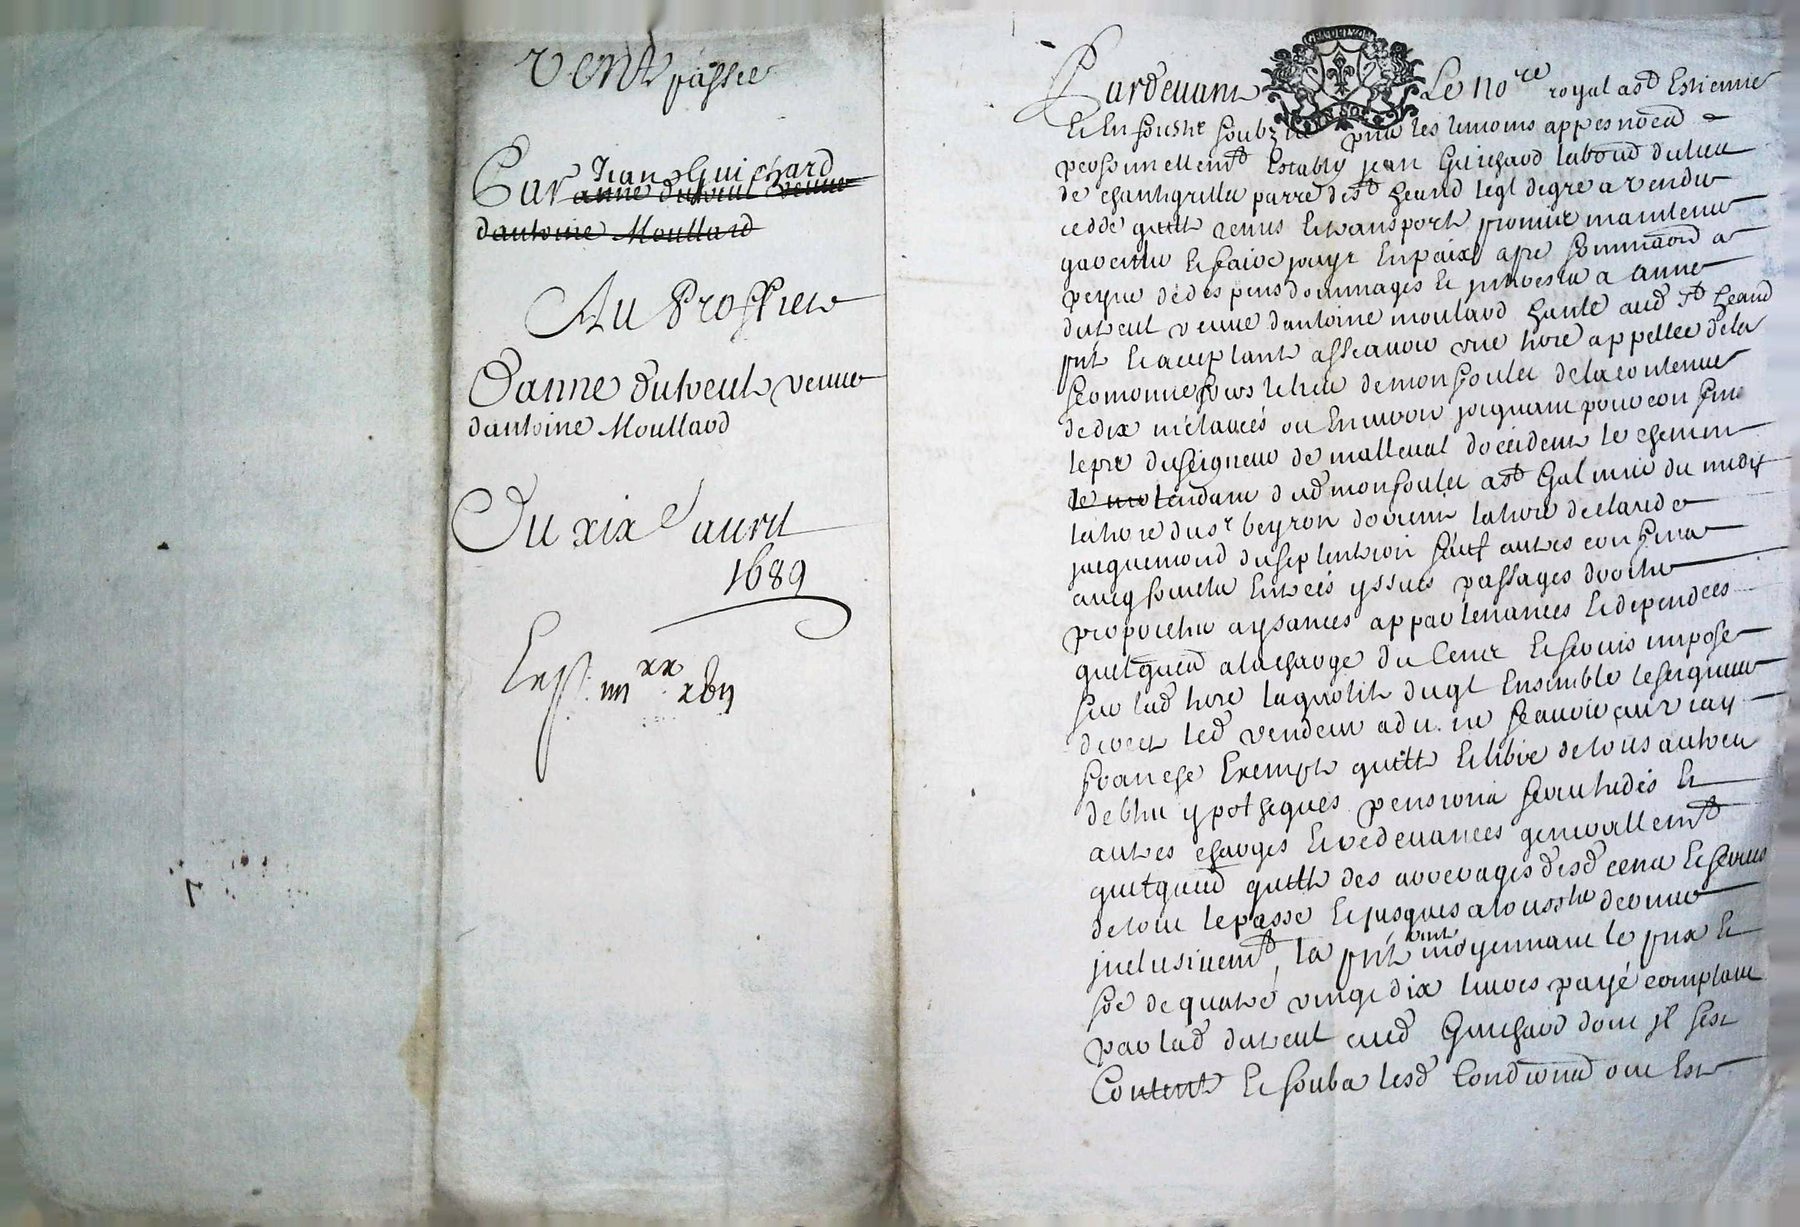 Vente passée
Par Jean Guichard
anne dutreul veuve
dantoine Moullard
Au Proffict
Danne dutreul veuve
dantoine Moullard
Du xixe avril
1689
xx
Pardevant Le nore royal a st Estienne
les temoins
personnellemt Estably jean Guichard labour du lieu
de chantigrilla parre de st heand leql de gre a vendu
cedde quitté remis Et transporté promis maintenir
garentir Et faire jouyr En paix
peyne de despens dommages Et a anne
dutreul veuve dantoine moulard aud st heand
Et acceptant assavoir une appellee de la
le lieu de monsouler de la contenue
de dix ou Environ joignant pour confins
le pre du seigneur de malleval doccident le chemin
tendant dud monsouler a st Galmie du midy
du sr beyron dorient de claude
jacquemond du septentrion sauf autres confins
avecq Entrees yssues passages droicts
proprietes aysances appartenances Et dependces
quelqued a la charge du Cens Et servis impose
sur lad la quotité duql Ensemble le seigneur
direct led vendeur a dit ne scavoir au vray
franche Exempte quitte Et libre de tous autres
debtes ypotheques pensions servitudes Et
autres charges Et redevances generallemt
quelqued quitte des arrerages desd cens Et servis
de tout le passe Et jusques a
jnclusivemt la pnte vente moyennant le prix Et
de quatre vingt dix livres payé comptant
par lad dutreul aud Guichard dont jl sest
Contenté Et soubs lesd Conditions ont Est